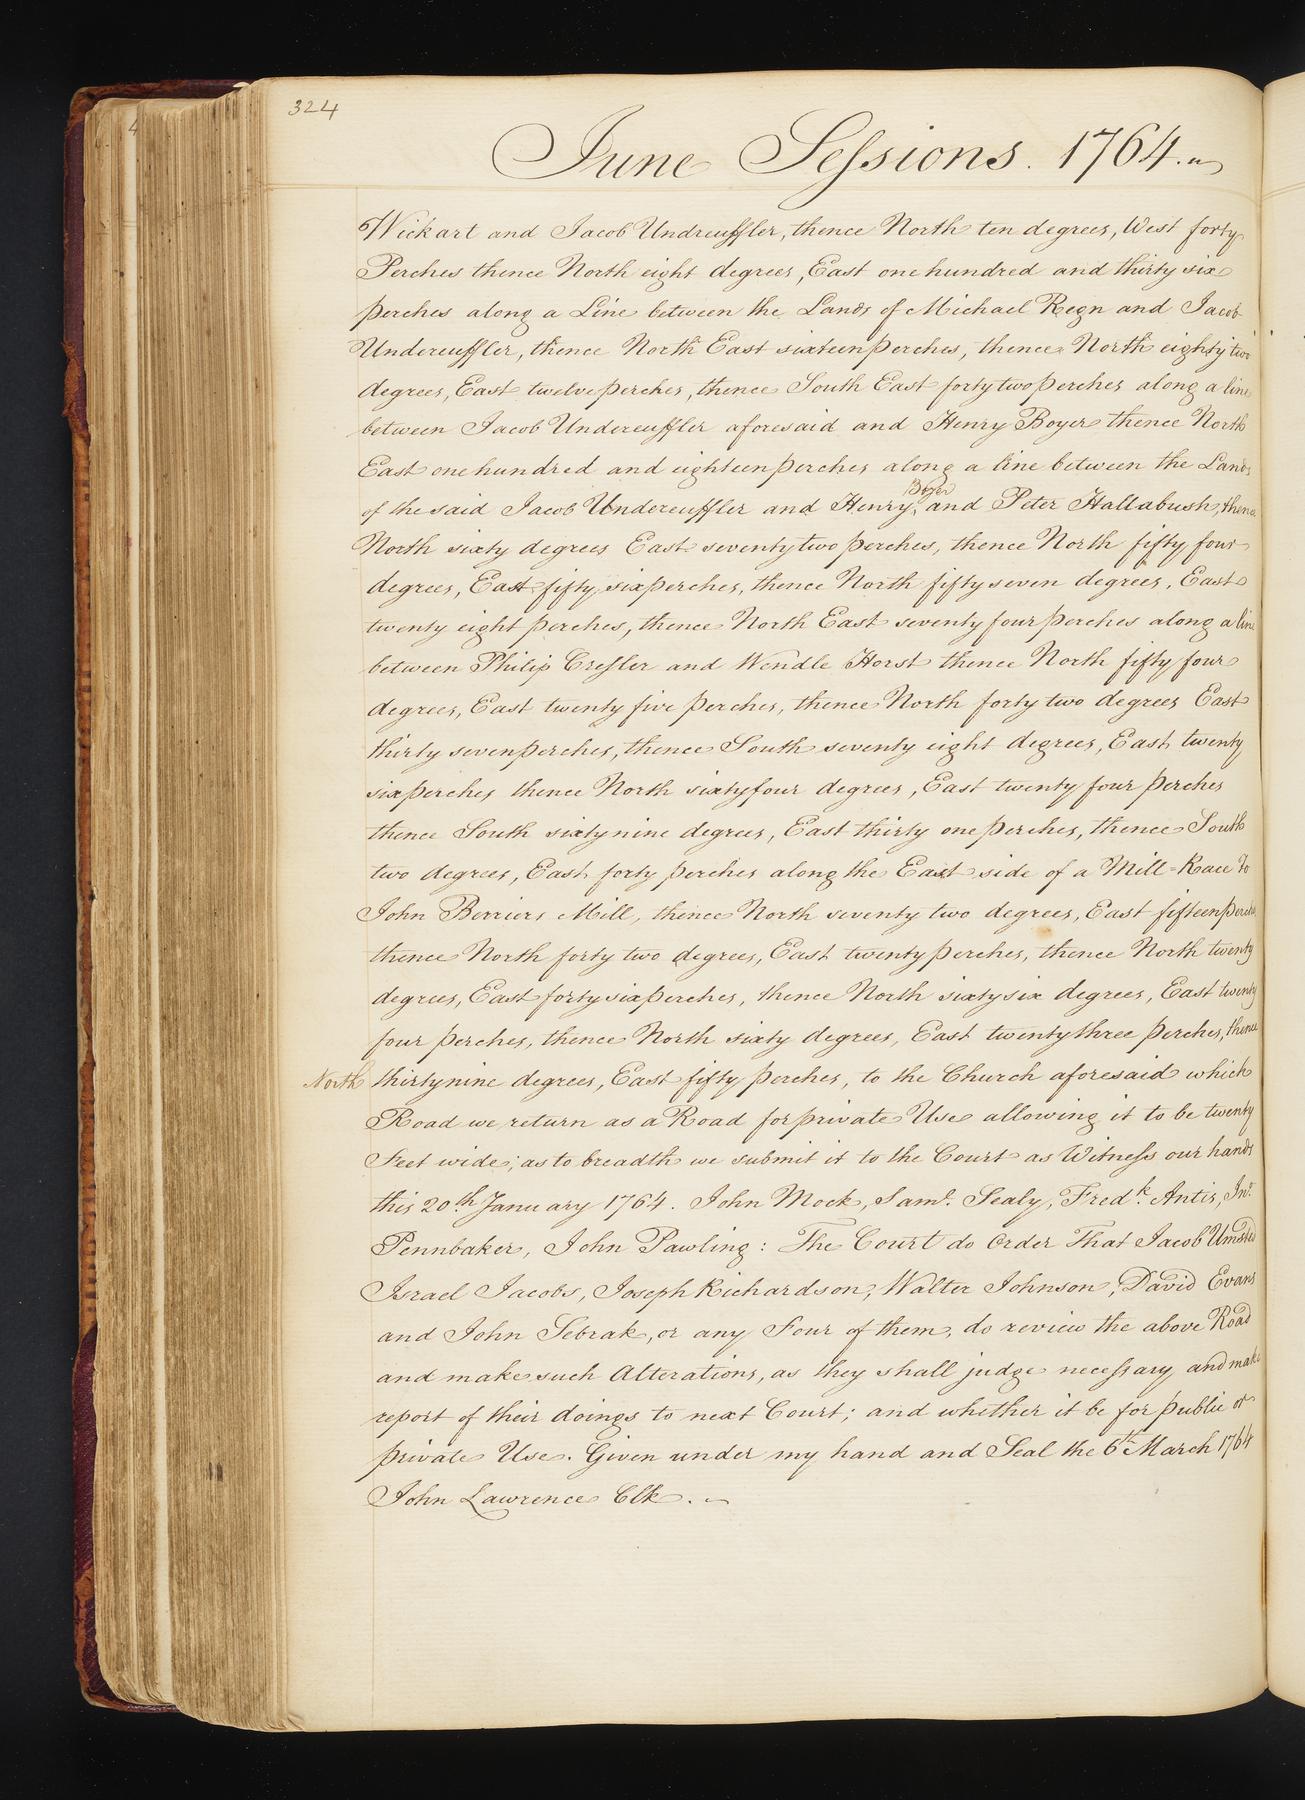 324
June Sessions. 1764.
Wickart and Jacob Undreuffler, thence North ten degrees, West forty
Perches thence North eight degrees, East one hundred and thirty six
perches along a Line between the Lands of Michael Regn and Jacob
Undereuffler, thence North East sixteen perches, thence North eighty two
degrees, East twelve perches, thence South East forty two perches along a line
between Jacob Undereuffler aforesaid and Henry Boyer thence North
East one hundred and eighteen perches along a line between the Lands
Boyer
of the said Jacob Undereuffler and Henry, and Peter Hallabush, thence
North sixty degrees East seventy two perches, thence North fifty four
degrees, East fifty six perches, thence North fifty seven degrees, East
twenty eight perches, thence North East seventy four perches along a line
between Philip Cressler and Wendle Horst thence North fifty four
degrees, East twenty five perches, thence North forty two degrees East
thirty seven perches, thence South seventy eight degrees, East twenty
six perches thence North sixty four degrees, East twenty four perches
thence South sixty nine degrees, East thirty one perches, thence South
two degrees, East forty perches along the East side of a Mill=Race to
John Berriers Mill, thence North seventy two degrees, East fifteen perches
thence North forty two degrees, East twenty perches, thence North twenty
degrees, East forty six perches, thence North sixty six degrees, East twenty
four perches, thence North sixty degrees, East twenty three perches, thence
North thirty nine degrees, East fifty perches, to the Church aforesaid which
Road we return as a Road for private Use allowing it to be twenty
Feet wide; as to breadth we submit it to the Court as Witness our hands
this 20th January 1764. John Mock, Saml. Sealy, Fredk. Antis, Jno.
Pennbaker, John Pawling: The Court do Order That Jacob Umsted
Israel Jacobs, Joseph Richardson, Walter Johnson, David Evans
and John Sebrak, or any Four of them, do review the above Road
and make such Alterations, as they shall judge necessary and make
report of their doings to next Court; and whether it be for public or
private Use. Given under my hand and Seal the 6th March 1764
John Lawrence Clk.